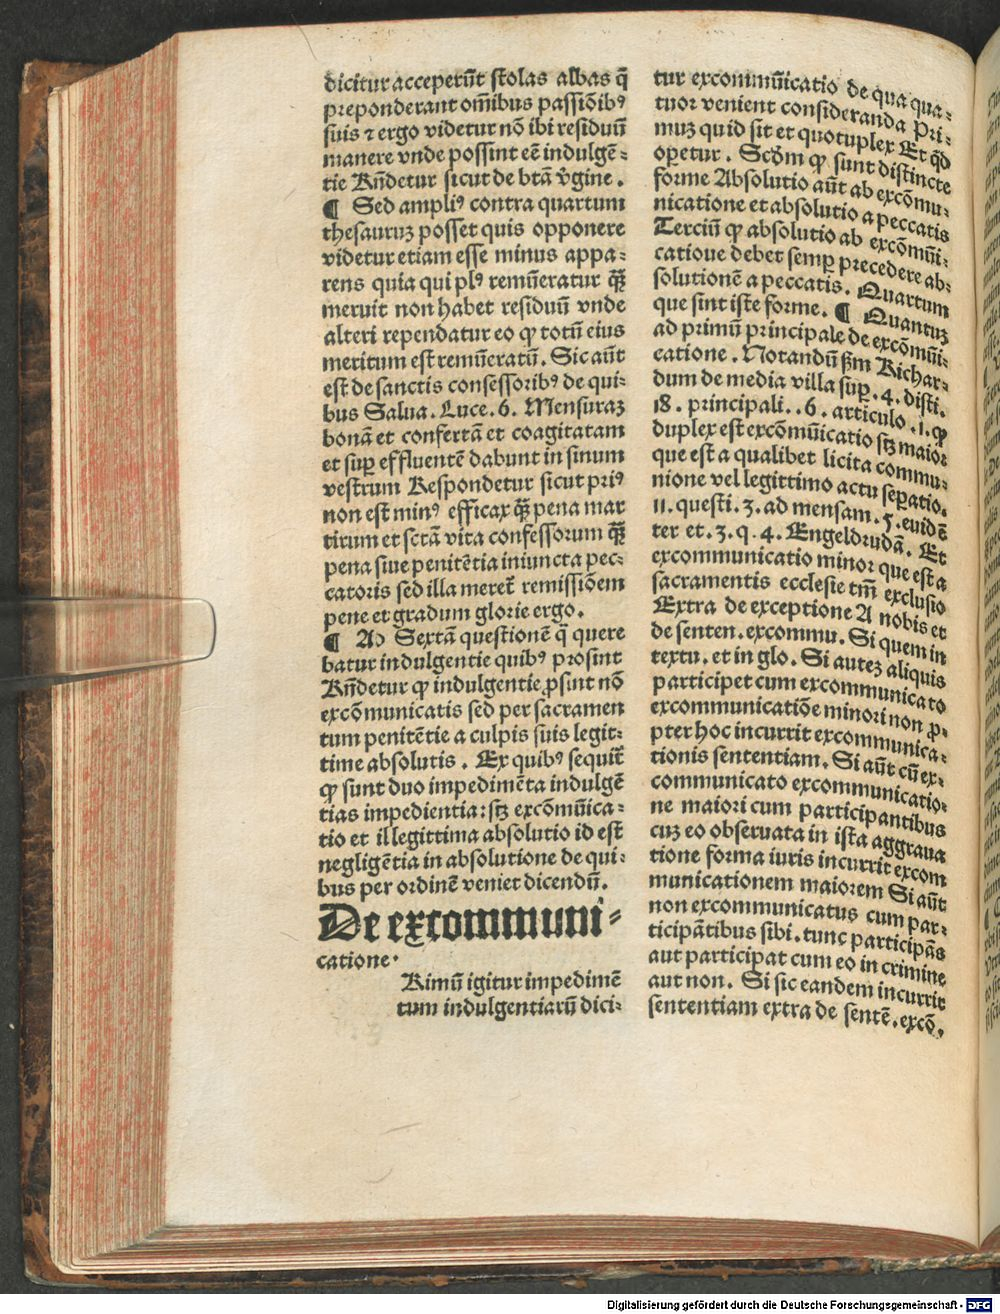 dicitur acceperūt stolas albas q̄
preponderant om̄ibus passiōibꝰ
suis ⁊ ergo videtur nō ibi residuū
manere vnde possint eē indulgē-
tie Rn̄detur sicut de btā v̄gine.
¶ Sed ampliꝰ contra quartum
thesauruꝫ posset quis opponere
videtur etiam esse minus appa-
rens quia qui plꝰ remūeratur qꝫ̄
meruit non habet residuū vnde
alteri rependatur eo ꝙ totū eius
meritum est remūeratū. Sic aūt
est de sanctis confessoribꝰ de qui-
bus Salua. Luce. 6. Mensuraꝫ
bonā et confertā et coagitatam
et suꝑ effluentē dabunt in sinum
vestrum Respondetur sicut priꝰ
non est minꝰ efficax qꝫ̄ pena mar
tirum et sctā vita confessorum qꝫ̄
pena siue penitētia iniuncta pec-
catoris sed illa meret̄ remissiōem
pene et gradum glorie ergo.
¶ Ad Sextā questionē q̄ quere
batur indulgentie quibꝰ prosint
Rn̄detur ꝙ indulgentie ꝓsūt nō
excōmunicatis sed per sacramen
tum penitētie a culpis suis legit-
time absolutis. Ex quibꝰ sequit̄
ꝙ sunt duo impedimēta indulgē
tias impedientia: sꝫ excōmūica-
tio et illegittima absolutio id est
negligētia in absolutione de qui-
bus per ordinē veniet dicendū.
De excommuni-
catione.
Rimū igitur impedimē
tum indulgentiarū dici-
tur excommūicatio de qua qua-
tuor venient consideranda Pri-
muꝫ quid sit et quotuplex Et qd̄
oꝑetur. Scd̄m ꝙ sunt distincte
forme Absolutio aūt ab excōmu-
nicatione et absolutio a peccatis
Terciū ꝙ absolutio ab excōmūi-
catioue debet semꝑ precedere ab-
solutionē a peccatis. Quartum
que sint iste forme. ¶ Quantuꝫ
ad primū principale de excōmūi-
catione. Notandū ẜm Richar-
dum de media villa suꝑ. 4. disti.
18. principali. . 6. articulo .1. ꝙ
duplex est excōmūicatio sꝫ maior
que est a qualibet licita commu-
nione vel legittimo actu seꝑatio.
11. questi. 3. ad mensam. 5. euidē
ter et. 3. q. 4. Engeldrudā. Et
excommunicatio minor que est a
sacramentis ecclesie tm̄ exclusio
Extra de exceptione A nobis et
de senten. excommu. Si quem in
textu. et in glo. Si auteꝫ aliquis
participet cum excommunicato
excommunicatiōe minori non ꝓ-
pter hoc incurrit excommunica-
tionis sententiam. Si aūt cū ex-
communicato excommunicatio-
ne maiori cum participantibus
cuꝫ eo obseruata in ista aggraua
tione forma iuris incurrit excom
municationem maiorem Si aūt
non excommunicatus cum par-
ticipātibus sibi. tunc participās
aut participat cum eo in crimine
aut non. Si sic eandem incurrit
sententiam extra de sentē. excō.
Digitalisierung gefördert durch die Deutsche Forschungsgemeinschaft - DFG